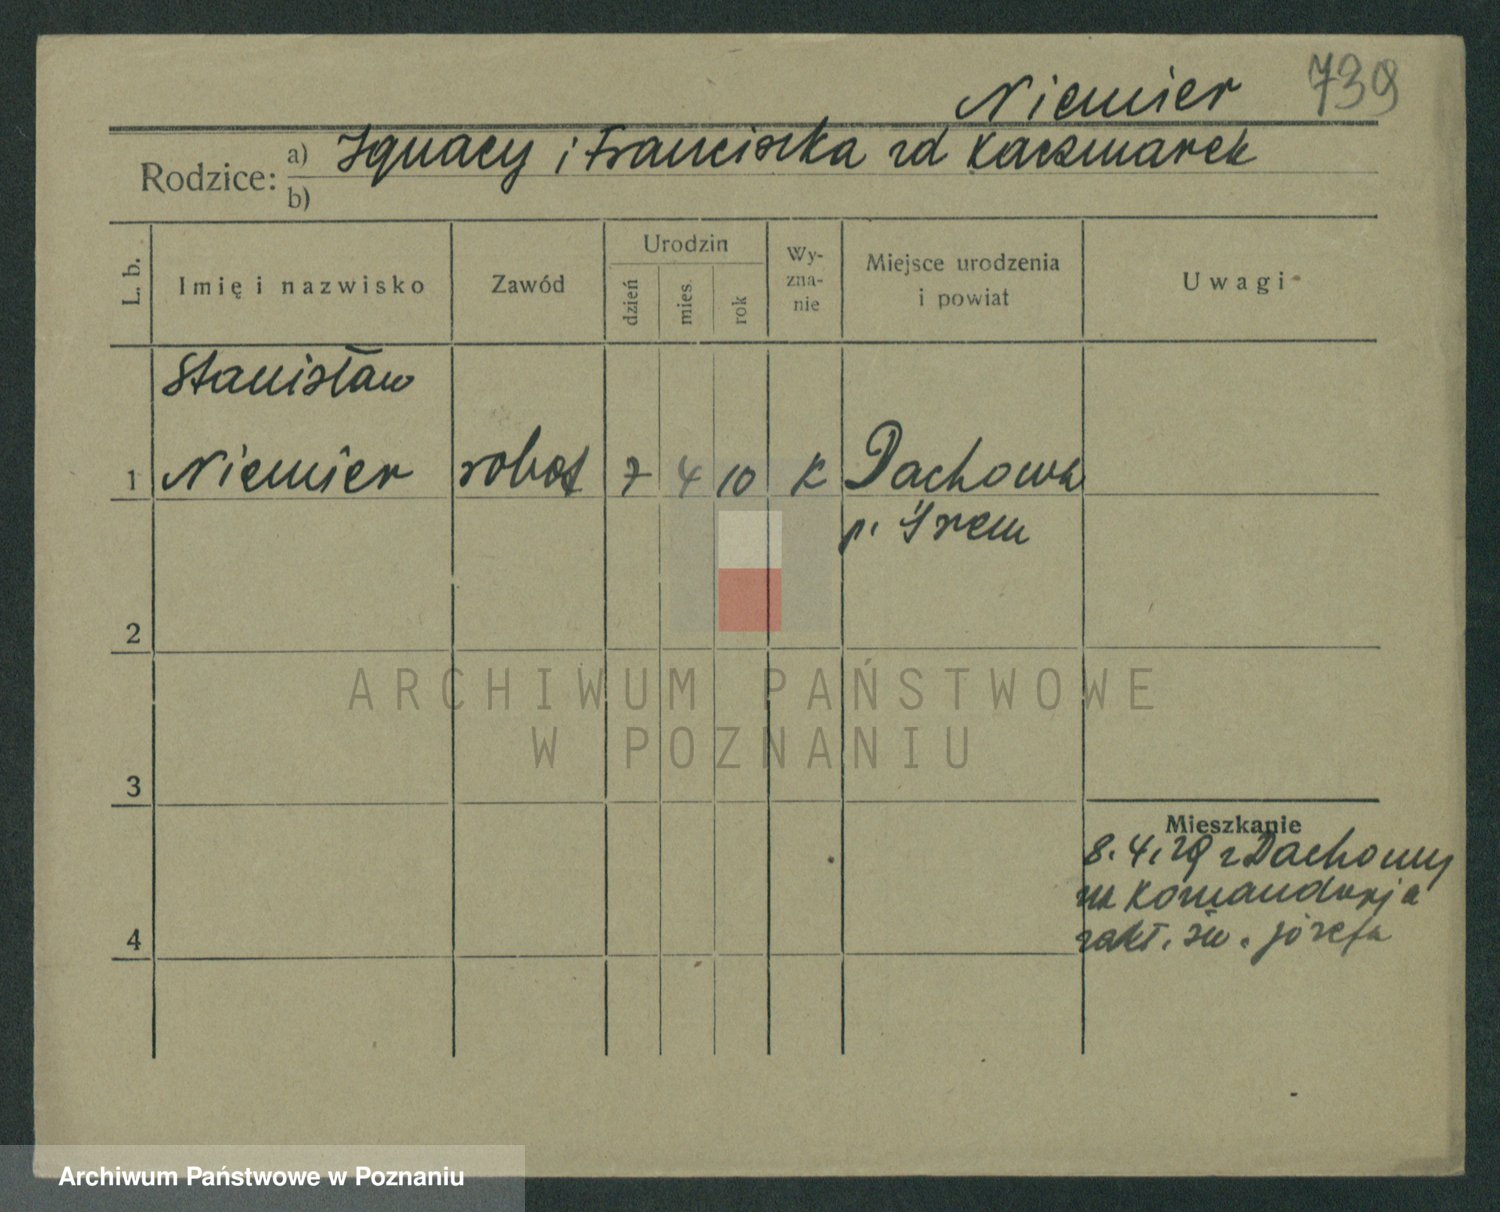 Niemier 739
Rodzice: a) Ignacy i Franciszka zd Kaczmarek
b)
L. b.
Imię i nazwisko
Zawód
Urodzin
dzień
mies.
rok
Wy-
zna-
nie
Miejsce urodzenia
i powiat
Uwagi
Stanisław
1 Niemier robot 7 4 10 K Dachowa
p. Śrem
2
3
4
Mieszkanie
8.4.29 z Dachowy
na Komandorja
zakł. św. Józefa
ARCHIWUM PAŃSTWOWE
W POZNANIU
Archiwum Państwowe w Poznaniu